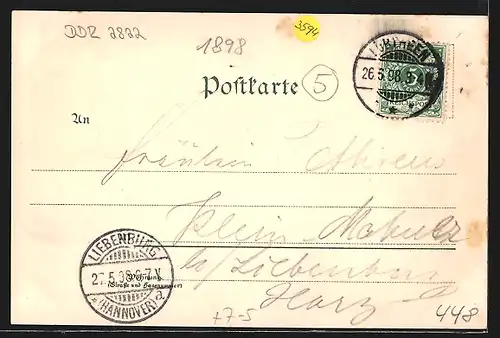 DDR 2822
1898
3594
Postkarte
5
26.5.98.
5
An
Fräulein Ahrens
Klein Mahner
b/ Liebenburg
Harz
LIEBENBURG
27.5.98. 6-7.V.
* (HANNOVER) a.
Wohnung
(Straße und Hausnummer)
+7-5
448